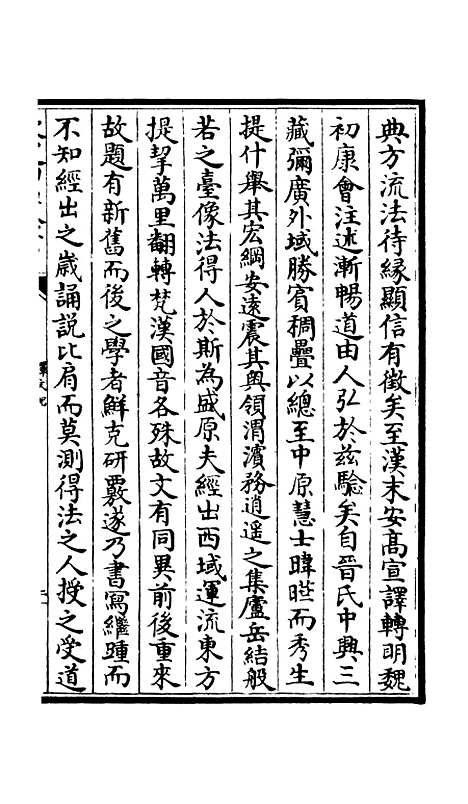 典方流法待縁顯信有徵矣至漢末安髙宣譯轉明魏
初康會注述漸暢道由人弘於兹驗矣自晉氏中興三
藏彌廣外域勝賓稠疊以總至中原慧士暐曄而秀生
提什舉其宏綱安遠震其奥領渭濱務逍遥之集廬岳結般
若之臺像法得人於斯為盛原夫經出西域運流東方
提挈萬里翻轉梵漢國音各殊故文有同異前後重來
故題有新舊而後之學者鮮克研覈遂乃書寫繼踵而
不知經出之嵗誦説比肩而莫測得法之人授之受道
釋文紀